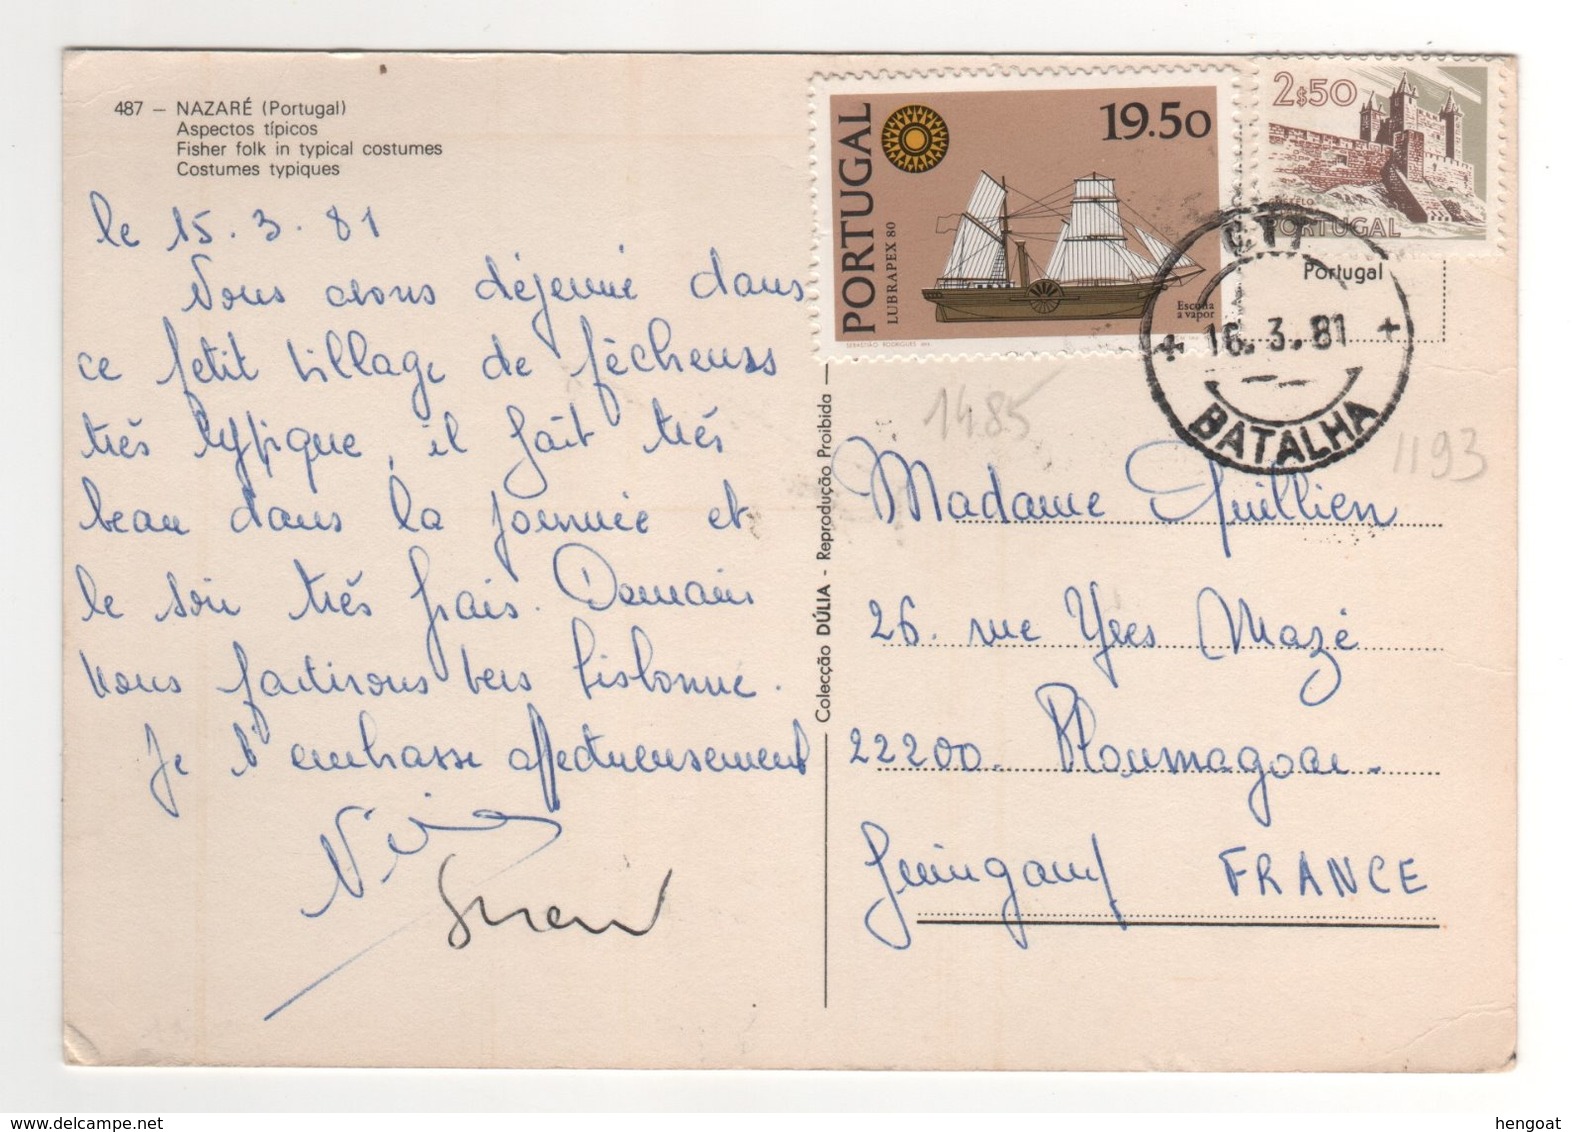 487 – NAZARÉ (Portugal)
Aspectos típicos
Fisher folk in typical costumes
Costumes typiques
le 15.3.81
Nous avons déjeuné dans
ce petit village de pêcheurs
très typique, il fait très
beau dans la journée et
le soir très frais. Demain
nous partirons vers Lisbonne.
Je t'embrasse affectueusement
Colecção DÚLIA - Reprodução Proibida
PORTUGAL
LUBRAPEX 80
19.50
Escuna
a vapor
SEBASTIÃO RODRIGUES
2$50
PORTUGAL
Portugal
CTT
+ 16.3.81 +
BATALHA
1485
1193
Madame Guillien
26. rue Yves Mazé
22200. Ploumagoar.
Guingamp FRANCE
hengoat